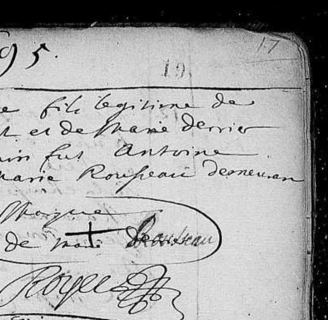 95.
17
19
e fils legitime de
t et de Marie derrier
ain fut Antoine
Marie Rouseau demeuran
Marque
de
Rouseau
Royer